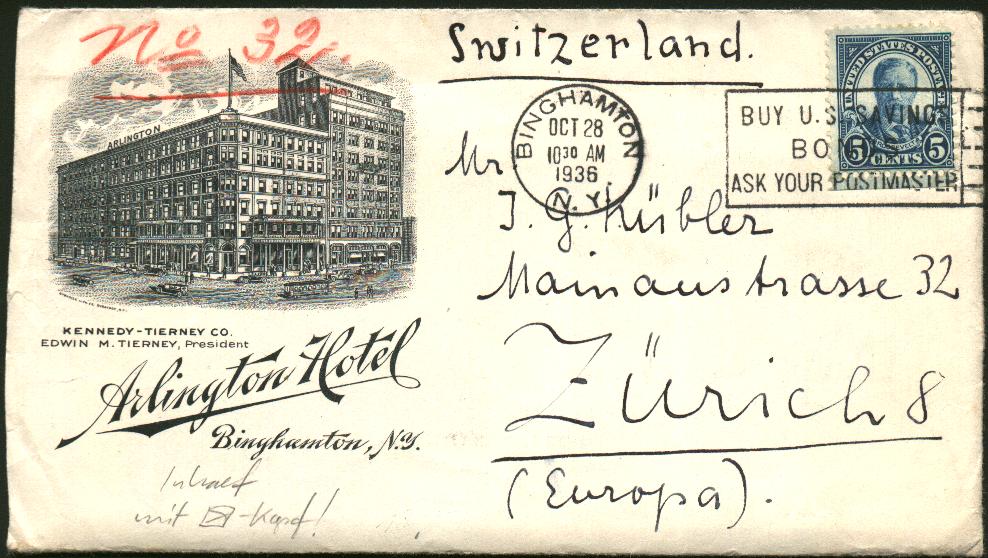 No 32.
Switzerland.
UNITED STATES POSTAGE
5 CENTS 5
BINGHAMTON
OCT 28
10 30 AM
1936
N.Y.
BUY U.S. SAVINGS
BONDS
ASK YOUR POSTMASTER
ARLINGTON
KENNEDY-TIERNEY CO.
EDWIN M. TIERNEY, President
Arlington Hotel
Binghamton, N.Y.
Mr
J. G. Kübler
Mainaustrasse 32
Zürich 8
(Europa).
Inhalt
mit -Kopf!